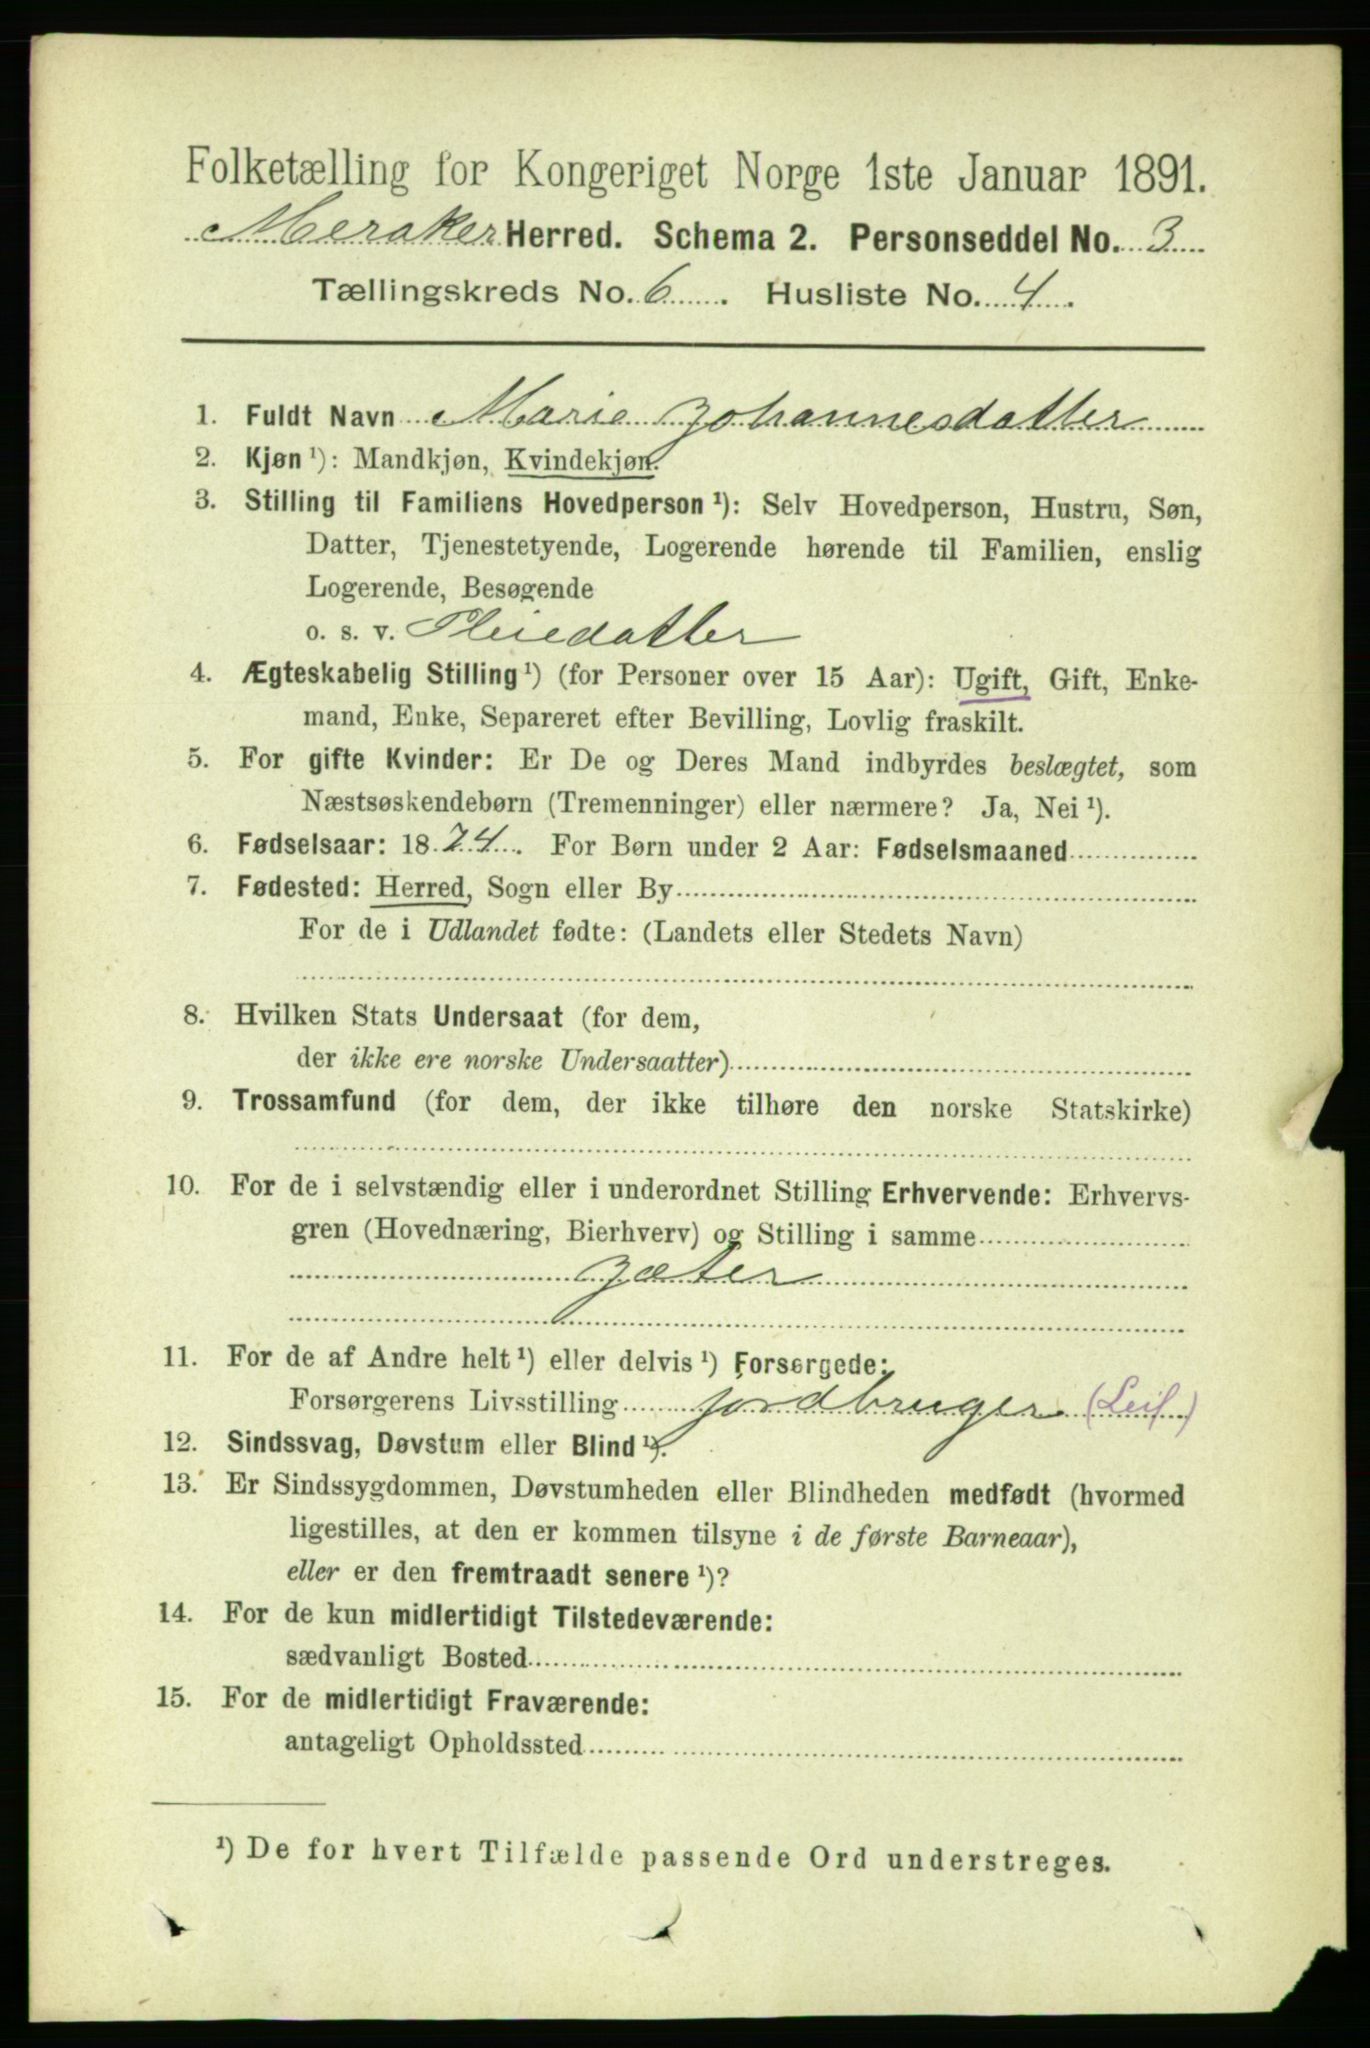 Folketælling for Kongeriget Norge 1ste Januar 1891.
Meraker Herred. Schema 2. Personseddel No. 3
Tællingskreds No. 6. Husliste No. 4.
1. Fuldt Navn Marie Johannesdatter
2. Kjøn ¹): Mandkjøn, Kvindekjøn.
3. Stilling til Familiens Hovedperson ¹): Selv Hovedperson, Hustru, Søn,
Datter, Tjenestetyende, Logerende hørende til Familien, enslig
Logerende, Besøgende
o. s. v. Pleiedatter
4. Ægteskabelig Stilling ¹) (for Personer over 15 Aar): Ugift, Gift, Enke-
mand, Enke, Separeret efter Bevilling, Lovlig fraskilt.
5. For gifte Kvinder: Er De og Deres Mand indbyrdes beslægtet, som
Næstsøskendebørn (Tremenninger) eller nærmere? Ja, Nei ¹).
6. Fødselsaar: 1874. For Børn under 2 Aar: Fødselsmaaned
7. Fødested: Herred, Sogn eller By
For de i Udlandet fødte: (Landets eller Stedets Navn)
8. Hvilken Stats Undersaat (for dem,
der ikke ere norske Undersaatter)
9. Trossamfund (for dem, der ikke tilhøre den norske Statskirke)
10. For de i selvstændig eller i underordnet Stilling Erhvervende: Erhvervs-
gren (Hovednæring, Bierhverv) og Stilling i samme
11. For de af Andre helt ¹) eller delvis ¹) Forsørgede:
Forsørgerens Livsstilling Jordbruger (Leil.)
12. Sindssvag, Døvstum eller Blind ¹).
13. Er Sindssygdommen, Døvstumheden eller Blindheden medfødt (hvormed
ligestilles, at den er kommen tilsyne i de første Barneaar),
eller er den fremtraadt senere ¹)?
14. For de kun midlertidigt Tilstedeværende:
sædvanligt Bosted
15. For de midlertidigt Fraværende:
antageligt Opholdssted
¹) De for hvert Tilfælde passende Ord understreges.